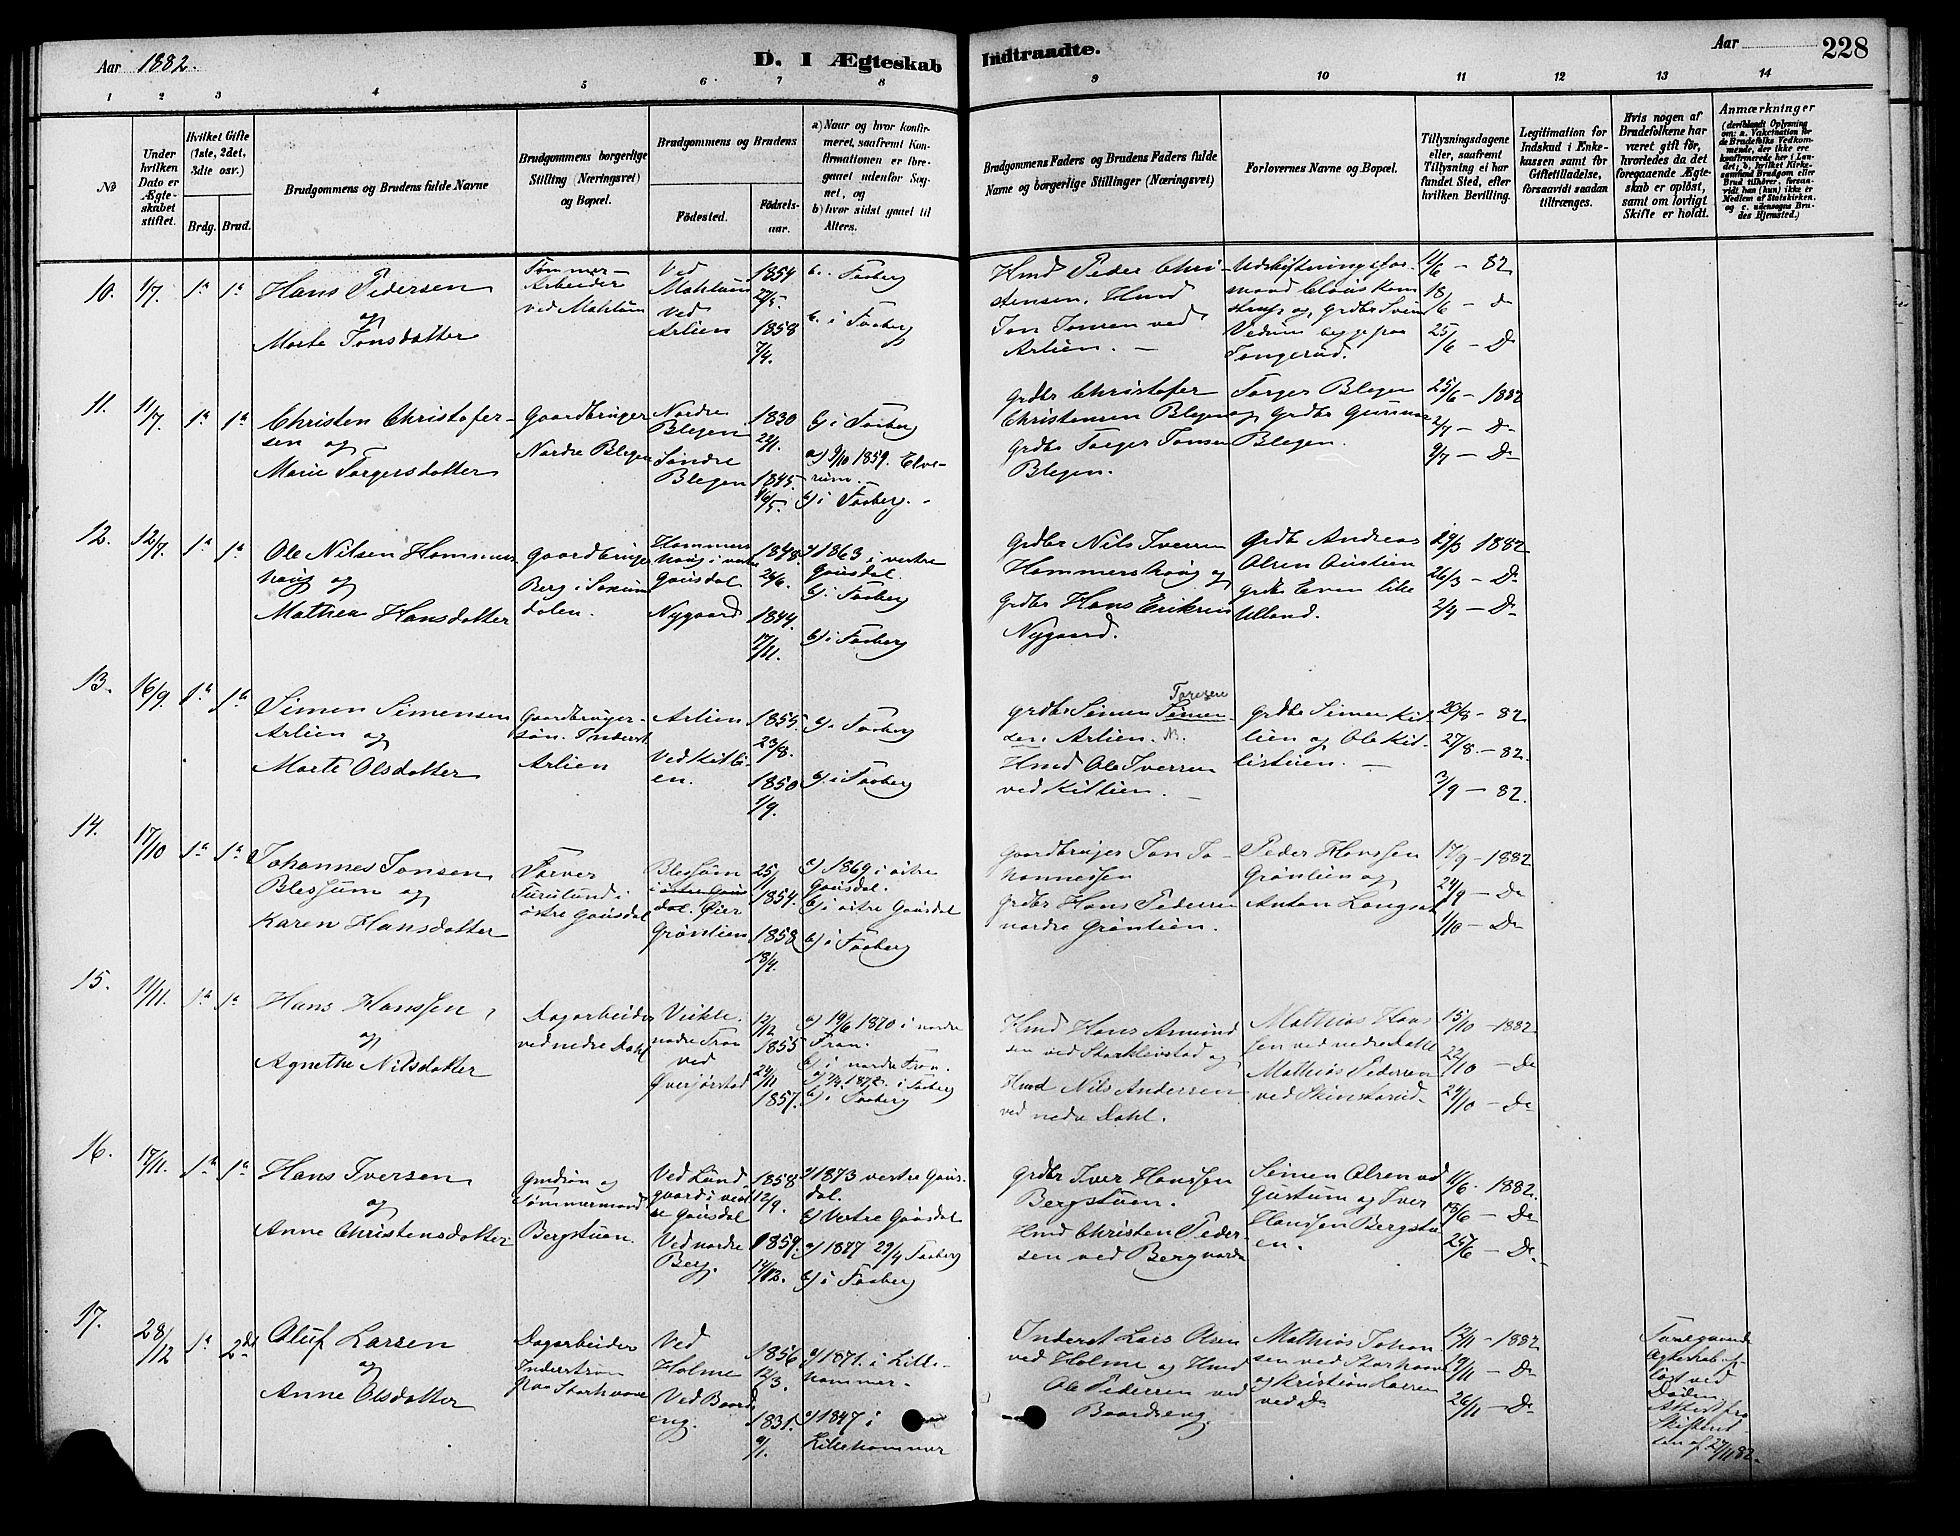 Aar 1882.
D. I Ægteskab
Indtraadte.
Aar
228
1 2 3 4 5 6 7 8 9 10 11 12 13 14
No
Under hvilken Dato er Ægteskabet stiftet.
Hvilket Gifte (1ste, 2det, 3die osv.)
Brdg. Brud.
Brudgommens og Brudens fulde Navne
Brudgommens borgerlige Stilling (Næringsvei) og Bopæl.
Brudgommens og Brudens
Födested.
Födsels-aar.
a) Naar og hvor konfirmeret, saafremt Konfirmationen er foregaaet udenfor Sognet, og
b) hvor sidst gaaet til Alters.
Brudgommens Faders og Brudens Faders fulde Navne og borgerlige Stillinger (Næringsvei)
Forlovernes Navne og Bopæl.
Tillysningsdagene eller, saafremt Tillysning ei har fundet Sted, efter hvilken Bevilling.
Legitimation for Indskud i Enkekassen samt for Giftetilladelse, forsaavidt saadan tiltrænges.
Hvis nogen af Brudefolkene har været gift för, hvorledes da det foregaaende Ægteskab er oplöst, samt om lovligt Skifte er holdt.
Anmærkninger
(deriblandt Oplysning om: a. Vakcination for de Brudefolks Vedkommende, der ikke ere konfirmerede her i Landet; b. hvilket Kirkesamfund Brudgom eller Brud tilhörer, forsaavidt han (hun) ikke er Medlem af Statskirken, og c. udensogns Brudes Hjemsted.)
10. 1/7. 1ste 1ste
Hans Pedersen
og
Marte Jonsdatter
Tömmer-
Arbeider
ved Mahlum
Ved
Mahlum
ved
Arlien
1854
27/5.
1858
7/4.
b. Faaberg
b. i Faaberg
Hmd Peder Chri-
stensen. Hmd
Jon Jonsen ved
Arlien. —
Udskiftningsfor-
mand
Jongerud.
11/6 — 82
18/6 — Do
25/6 — Do
11. 11/7. 1ste 1ste
Christen Christofer-
sen og
Marie Torgersdatter
Gaardbruger
Nordre Blegen
Nordre
Blegen
Söndre
Blegen
1820
22/1.
1845.
16/5.
b) i Faaberg
a) 9/10 1859. Elve-
rum. —
b) i Faaberg. -
grdbr Christofer
Christensen Blegen
grdbr Torger Jonsen
Blegen.
Torger Blegen
og grdbr Gunnar
Blegen.
25/6 — 1882
2/7 — Do
9/7 — Do
12. 12/7. 1ste 1ste
Ole Nilsen Hammers-
houg og
Mathea Hansdatter
Gaardbruger
Berg i Saxum-
dalen.
Hammers
houg i vestre
Gausdal
Nygaard
1848.
26/6.
1844.
17/11.
a) 1863 i vestre
Gausdal.
b) i Faaberg
b) i Faaberg
Grdbr Nils Iversen
Hammershoug og
grdbr Hans Eriksen
Nygaard.
grdbr Andreas
Olsen Austlien
grdbr Even lille
Ulland.
19/3 1882
26/3 — Do
2/4 — Do
13. 16/9. 1ste 1ste
Simen Simensen
Arlien og
Marte Olsdatter
Gaardbruger-
sön. Inderst
Arlien
Arlien
Ved Kitli-
en.
1855.
23/8.
1850
1/9.
b). Faaberg
b) i Faaberg
Toresen
grdbr Simen Simen-
sen. Arlien. NB.
Hmd Ole Iversen
ved Kitlien. —
grdbr Simen Kit-
lien og Ole Kit-
listuen. —
20/8 — 82
27/8. — 82.
3/9 — 82.
14. 17/10 1ste 1ste
Johannes Jonsen
Blessum og
Karen Hansdatter
Farver
Furulund i
östre Gausdal
Blessum
i östre Gaus
dal. Öier
Grönlien
25/1
1854.
1858
18/4.
a) 1869 i östre
Gausdal.
b) i östre Gausdal
b) i Faaberg
Gaardbruger Jon Jo-
hannessen
grdbr Hans Pedersen
nordre Grönlien.
Peder Hanssen
Grönlien og
Anton Langset
17/9 — 1882
24/9 — Do
1/10 — Do
15. 11/11. 1ste 1ste
Hans Hanssen
og
Agnethe Nilsdatter
Dagarbeider
ved nedre Dahl
Veikle.
nodre Fron
ved
Överjörstad
12/12
1855
24/11
1857.
a) 19/6 1870 i nordre
Fron.
b) i nordre Fron.
a) 7/4 1872. i Faaberg
b) i Faaberg
Hmd Hans Amund
sen ved Storklevstad og
Hmd Nils Andersen
ved nedre Dahl.
Mathias Hans
sen ved nedre Dahl
Mathias Pedersen
ved Skinstarud.
15/10 — 1882
22/10 — Do
29/10 — Do
16. 17/11. 1ste 1ste
Hans Iversen
og
Anne Christensdatter
Grdsön og
Tömmermand
Bergstuen.
Ved Lund-
gaard i vest
re Gausdal
Ved nordre
Berg.
1858
12/9.
1859.
14/12.
a) 1873 vestre Gaus-
dal.
b) Vestre Gausdal
a) 1877 29/4 Faaberg
b) i Faaberg
grdbr Iver Hanssen
Bergstuen.
Hmd Christen Peder-
sen ved Berg nordre
Simen Olsen ved
Gustum og Iver
Hanssen Bergstu
en.
11/6. 1882.
18/6 — Do
25/6 — Do.
17. 28/12 1ste 2det
Oluf Larsen
og
Anne Olsdatter
Dagarbeider
Inderst
paa Storhaave
Ved
Holme
Ved Baards
eng.
1856
12/3.
1831.
9/1.
a) 1871. i Lille-
hammer.
a) 1847 i
Lillehammer
Inderst Lars Olsen
ved Holme og Hmd
Ole Pedersen ved
Baardseng.
Mathias Johan
sen ved Storhaave
og Kristian Larsen
ved Do
12/11 — 1882
19/11 — Do
26/11 — Do
Foregaaende
Ægteskab op-
löst ved
Döden.
Attest fra
Skifteret-
ten af 27/11 82.